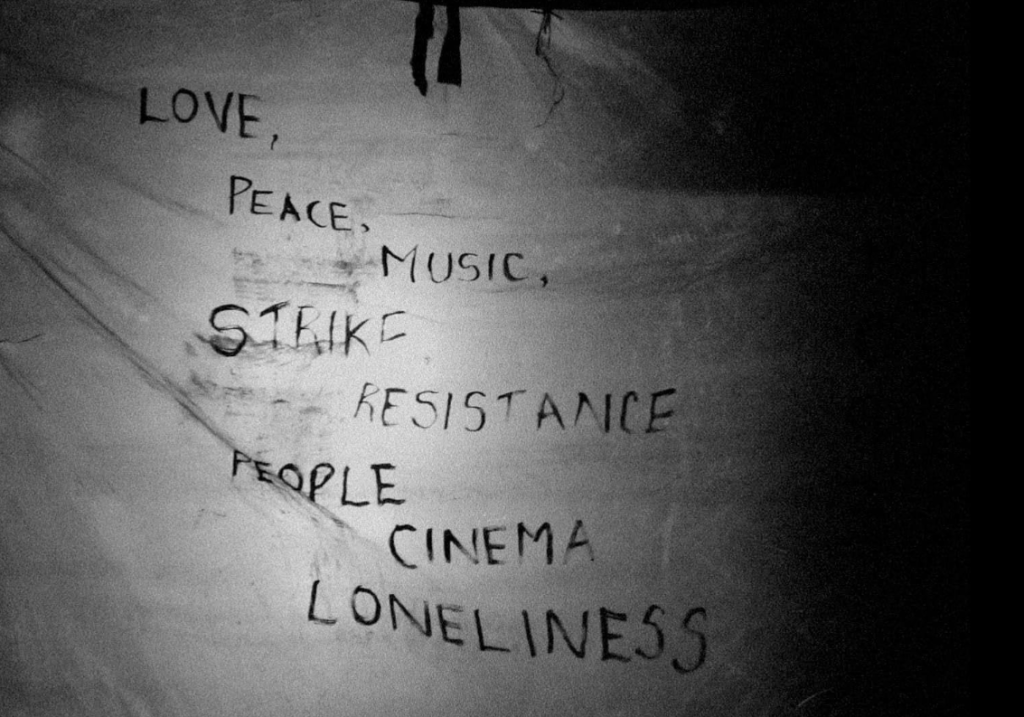 LOVE,
PEACE,
MUSIC,
STRIKE
RESISTANCE
PEOPLE
CINEMA
LONELINESS